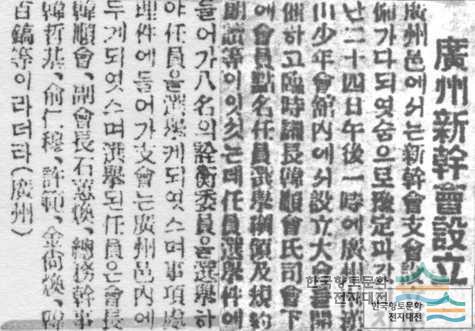 廣州新幹會設立
廣州邑에서는新幹會支會
備가다되엿슴으로豫定과
난二十四日午後一時에廣州
山少年會舘內에서設立大會를開
催하고臨時議長韓順會氏司會下
에會員點名任員選擧綱領及規約
朗讀等이잇섯는데任員選擧件에
들어가八名의銓衡委員을選擧하
야任員을選擧케되엿스며事項處
理件에들어가支會는廣州邑內에
두게되엿스며選擧된任員은會長
韓順會、副會長石惠煥、總務幹事
韓哲基、兪仁穆、許、金尙煥、韓
百鎬等이라더라(廣州)
한국향토문화
전자대전
한국향토문화
전자대전